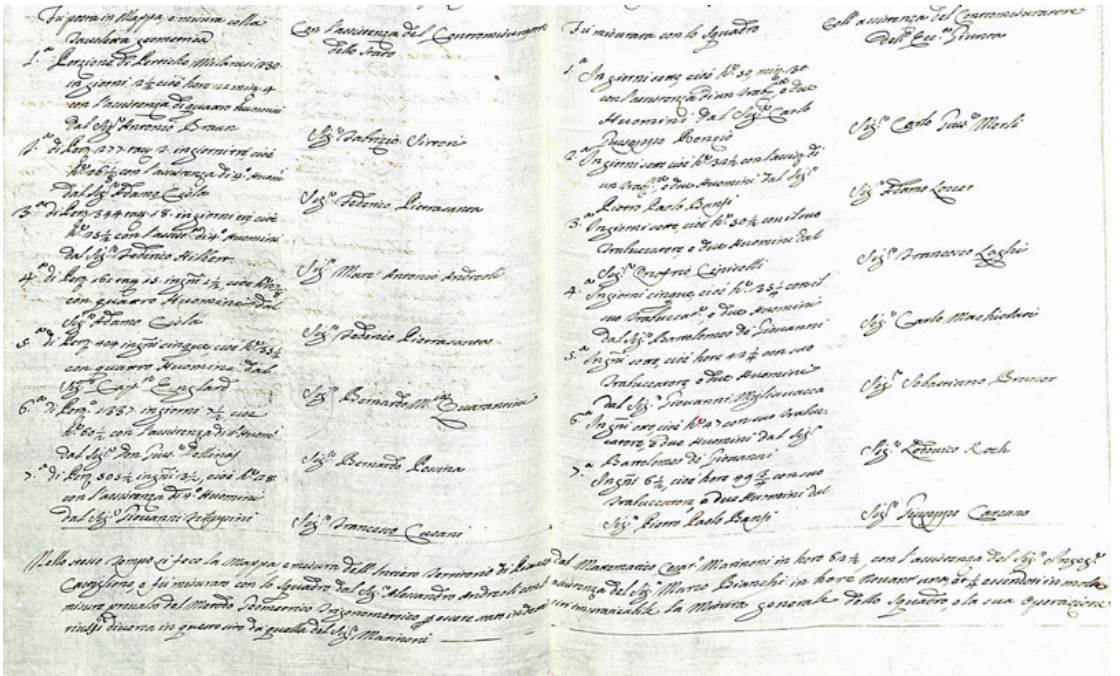 Fu posta in Mappa, e misura colla
Tavoletta geometrica
1.ª Porzione di Pertiche Milanesi 230
in giorni 2½ cioè hore 22 min. 4
con l'assistenza di quattro huomini
dal Sig.r Antonio Braun
2.ª di Pert. 277 tav. 2. in giorni tre cioè
h.re 26½ con l'assistenza di 4.o Huomi
dal Sig.r Adamo Csela
3.ª di Pert. 344 tav. 18. in giorni tre cioè
h.re 25½ con l'assist. di 4.o Huomini
dal Sig.r Federico Hilherr
4.ª di Pert. 161 tav. 13. in gñi 1½ cioè
con quattro Huomini dal
Sig.r Adamo Csela
5.ª di Pert. 404 in gñi cinque, cioè h.re 33½
con quattro Huomini dal
Sig.r Cap.n Englard
6.ª di Pert. 1337. in giorni 7½ cioè
h.re 60½ con l'assistenza di 4.o Huomi
dal Sig.r Don Gius.
7.ª di Pert. 303½ in gñi 3½, cioè h.re 28
con l'assistenza di 4.o Huomini
dal Sig.r Giovanni Filippini
Con l'assistenza del Contromisuratore
dello Stato
Sig.r Fabrizio Sirroni
Sig.r Federico Pietrasanta
Sig.r Marc' Antonio Andreoli
Sig.r Federico Pietrasanta
Sig.r Bernardo M.ia Quarantina
Sig.r Bernardo Rovina
Sig.r Francesco Cassani
Fu misurata con lo Squadro
1.ª In giorni sette, cioè h.re 59, min. 30
con l'assistenza di un Trab.re e due
Huomini dal Sig.r Carlo
Giuseppe Benzio
2.ª In giorni sette cioè h.re 32½ con l'assist. di
un Trab.re e due Huomini dal Sig.r
Pietro Paolo Banfi
3.ª In giorni sette, cioè h.re 50½ con il suo
Trabuccatore, e due Huomini dal
Sig.r Onofrio Cinicelli
4.ª In giorni cinque, cioè h.re 35½ con il
suo Trabuccat.re e due Huomini
dal Sig.r Bartolomeo de Giovanni
5.ª In gñi sette, cioè hore 42½ con suo
Trabuccatore e due Huomini
dal Sig.r Giovanni Migliavacca
6.ª In gñi otto, cioè h.re 47 con suo Trabuc-
catore, e due Huomini dal Sig.r
Bartolomeo de Giovanni
7.ª In gñi 6½, cioè hore 49 con suo
Trabuccatore, e due Huomini dal
Sig.r Pietro Paolo Banfi
Coll'assistenza del Contromisuratore
dell'Ecc.ma Giunta
Sig.r Carlo Gius.e Merli
Sig.r Adamo Lover
Sig.r Francesco Laghi
Sig.r Carlo Machiolari
Sig.r Sebastiano Bruner
Sig.r Lodovico Koch
Sig.r Giuseppe Carcano
Nello stesso tempo si fece la Mappa, e misura dell'Intiero Territorio di dal Matematico Cesar.o Marinoni in hore 62½, con l'assistenza del Sig.r Ingeg.r
Castiglione, e fu misurato con lo Squadro dal Sig.r Alessandro Andreoli coll'assistenza del Sig.r Marco Bianchi in hore essendosi in
misura prevalso del Metodo Geometrico Trigonometrico, essere stato impraticabile la Misura generale dello Squadro, e la sua Operazione
riuscì diversa in questo sito da quella del Sig.r Marinoni